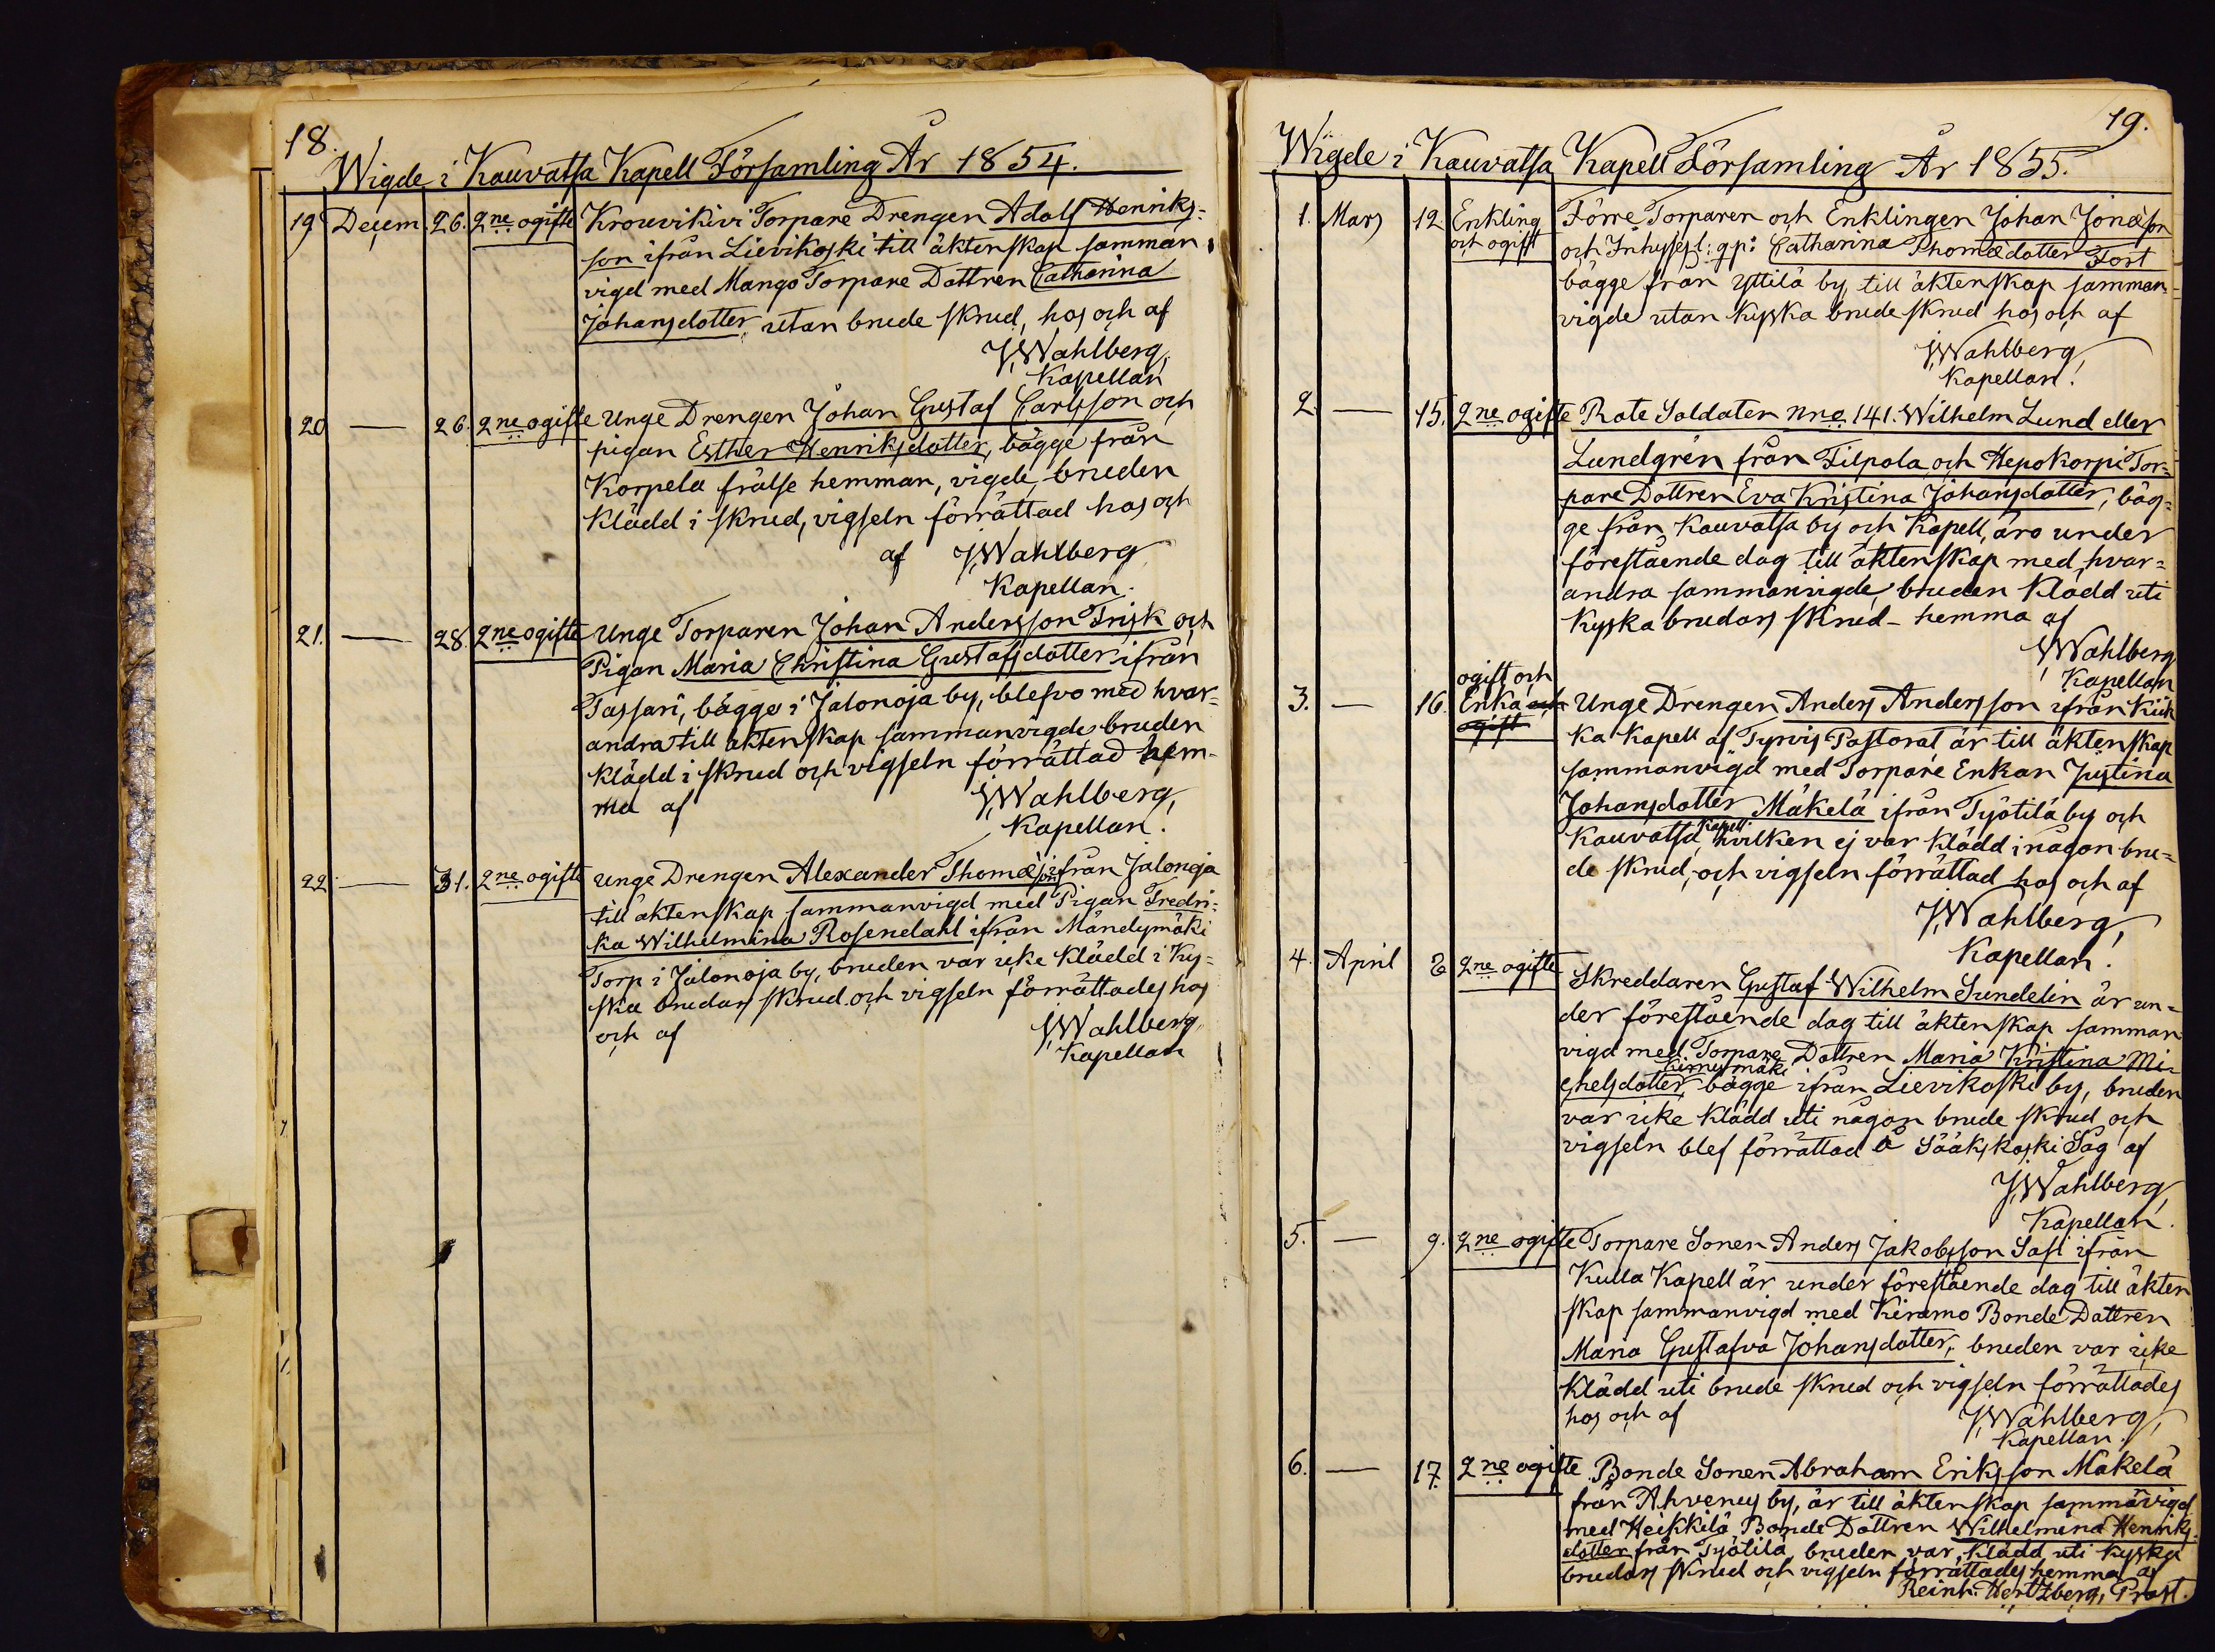 18.
Wigde i Kauvatsa Kapell Församling År 1854.
19 Decem. 26. 2ne ogifte Krouvikivi Torpare Drengen Adolf Henriks-
son ifrån Lievikoski till äktenskap samman
vigd med Mango Torpare Dottren Catharina
Johansdotter utan brude skrud, hos och af
J. Wahlberg,
Kapellan
20 — 26. 2ne ogifte Unge Drengen Johan Gustaf Carlsson och
pigan Esther Henriksdotter, bägge från
Korpela frälse hemman, vigde, bruden
klädd i skrud, vigseln förrättad hos och
af J. Wahlberg
Kapellan.
21. — 28. 2ne ogifte Unge Torparen Johan Andersson Frisk och
Pigan Maria Christina Gustafsdotter ifrån
Tassari, bägge i Jalonoja by, blefvo med hvar=
andra till äktenskap sammanvigde bruden
klädd i skrud och vigseln förrättad hem-
ma af J. Wahlberg,
Kapellan.
22. — 31. 2ne ogifte unge Drengen Alexander Thomæson ifrån Jalonoja
till äktenskap sammanvigd med Pigan Fredri=
ka Wilhelmina Rosendahl ifrån Mändymäki
Torp i Jalonoja by, bruden var icke klädd i Ky=
ska brudars skrud och vigseln förrättades hos
och af J. Wahlberg,
Kapellan
19.
Wigde i Kauvatsa Kapell Församling År 1855.
1. Mars 12 Enkling Förre Torparen och Enklingen Johan Jonæson
och ogift och Inhysesl: gp: Catharina Thomædotter Tost
bägge från Yttilä by, till äktenskap samman=
vigde utan kyska brude skrud hos och af
J. Wahlberg,
Kapellan.
2. — 15. 2ne ogifte Rote Soldaten Nro 141. Wilhelm Lund eller
Lundgrén från Filpola och Hepokorpi Tor=
pare Dottren Eva Kristina Johansdotter, bäg=
ge från Kauvatsa by och Kapell, äro under
förestående dag till äktenskap med hvar=
andra sammanvigde, bruden klädd uti
Kyska brudars skrud – hemma af
J. Wahlberg
Kapellan
ogift och
3. — 16. Enka och Unge Drengen Anders Andersson ifrån Kiik
ogift ka Kapell af Tyrvis Pastorat är till äktenskap
sammanvigd med Torpare Enkan Justina
Johansdotter Mäkelä ifrån Työtilä by och
Kauvatsa Kapell, hvilken ej var klädd i någon bru=
de skrud, och vigseln förrättad hos och af
J. Wahlberg,
Kapellan.
4. April 2 2ne ogifte Skreddaren Gustaf Wilhelm Sundelin är un=
der förestående dag till äktenskap samman
vigd med Torpare Dottren Maria Kristina Mi=
chelsdotter bägge ifrån Lievikoski by, bruden
var icke klädd uti någon brude skrud och
vigseln blef förrättad å Sääkskoski Såg af
J. Wahlberg,
Kapellan.
5. — 9. 2ne ogifte Torpare Sonen Anders Jakobsson Safi ifrån
Kulla Kapell är under förestående dag till äkten
skap sammanvigd med Keramo Bonde Dottren
Maria Gustafva Johansdotter, bruden var icke
klädd uti brude skrud och vigseln förrättades
hos och af J. Wahlberg,
Kapellan.
6. — 17. 2ne ogifte Bonde Sonen Abraham Eriksson Mäkelä
från Ahvenus by, är till äktenskap sammāvigd
med Heikkilä Bonde Dottren Wilhelmina Henriks
dotter från Työtilä, bruden var klädd uti kyska
brudars skrud och vigseln förrättades hemma af
Reinh: Hertzberg, Prost.